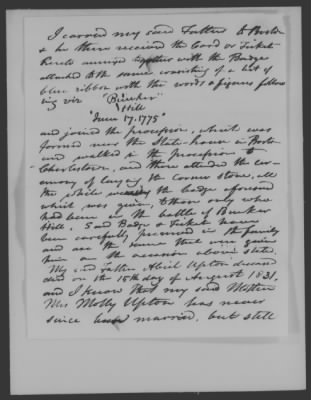 I carried my said Father to Boston
& he there received the Card or Ticket
annexed together with the Badge
attached to the same consisting of a bit of
blue ribbon with the words & figures follow
ing viz "Bunker
Hill
June 17. 1775"
and joined the procession, which was
formed near the State-house in Boston
and walked in the procession to
Charlestown, and there attended the cer-
emony of laying the corner stone, all
the while wearing the badge aforesaid
which was given to those only who
had been in the battle of Bunker
Hill. Said Badge & Ticket have
been carefully preserved in the family
and are the same that were given
him on the occasion above stated.
My said Father Abiel Upton deceased
died on the 15th day of August 1831.
and I know that my said Mother
Mrs Molly Upton has never
since married, but still